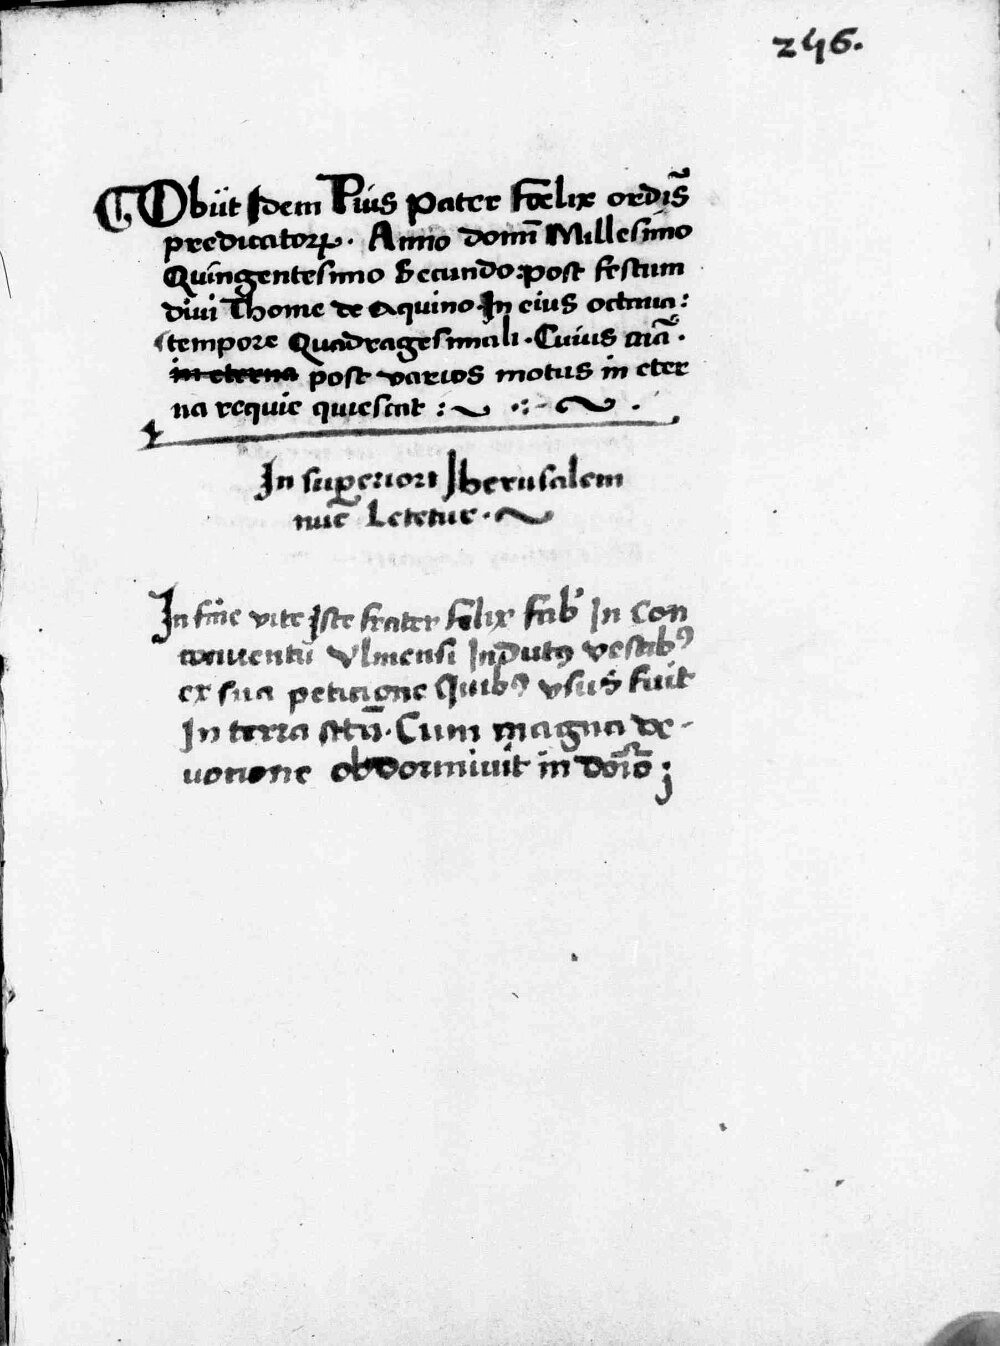 246.
Obiit Idem Pius Pater Foelix ordīs
predicatoꝝ. Anno domī Millesimo
Quingentesimo Secundo: post festum
divi Thome de Aquino. In eius octava:
tempore Quadragesimali. Cuius aīa.
in eterna post varios motus in eter
na requie quiescat :~ .:- ~ .
In superiori Iherusalem
nūc Letetur. ~
In fine vite Iste frater Felix Fab' In Con
conventū Ulmensi Indutꝰ vestibꝰ
ex sua peticione Quibꝰ usus fuit
In terra sctā. Cum magna de-
vocione obdormivit in dōīo ;